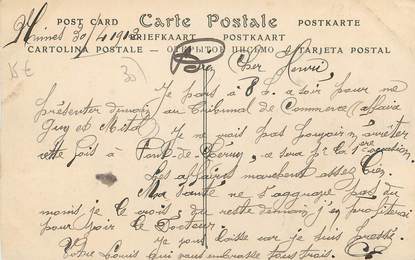 POST CARD Carte Postale POSTKARTE
BRIEFKAART POSTKAART
CARTOLINA POSTALE - ОТКРЫТОЕ ПИСЬМО - TARJETA POSTAL
Nimes 30/4 1912
15 €
30
Cher Henri
Je pars à 8 h. a soir pour me
présenter demain au Tribunal de Commerce (affaire
Guy et Mital
Je ne vais pas pouvoir m'arrêter
cette fois à Port-de-Bouc, ce sera p. la 1ere occasion.
Les affaires marchent assez bien.
Ma santé ne s'aggrave pas du
moins je le crois, du reste demain j'en profiterai
pour voir le Docteur.
Je vous laisse car je suis pressé.
Votre Louis qui vous embrasse tous trois.